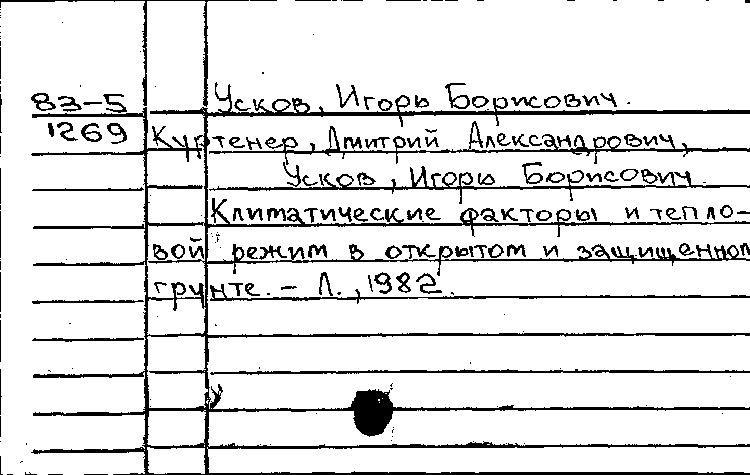 83-5 Усков, Игорь Борисович.
1269 Куртенер, Дмитрий Александрович,
Усков, Игорь Борисович.
Климатические факторы и тепло-
вой режим в открытом и защищенном
грунте. - Л., 1982.